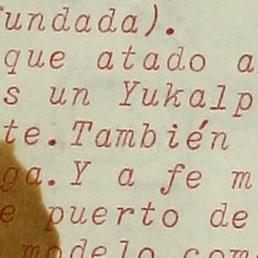 fundada).
que atado a
s un Yukalp
te.También
ga.Y a fe m
e puerto de
modelo com